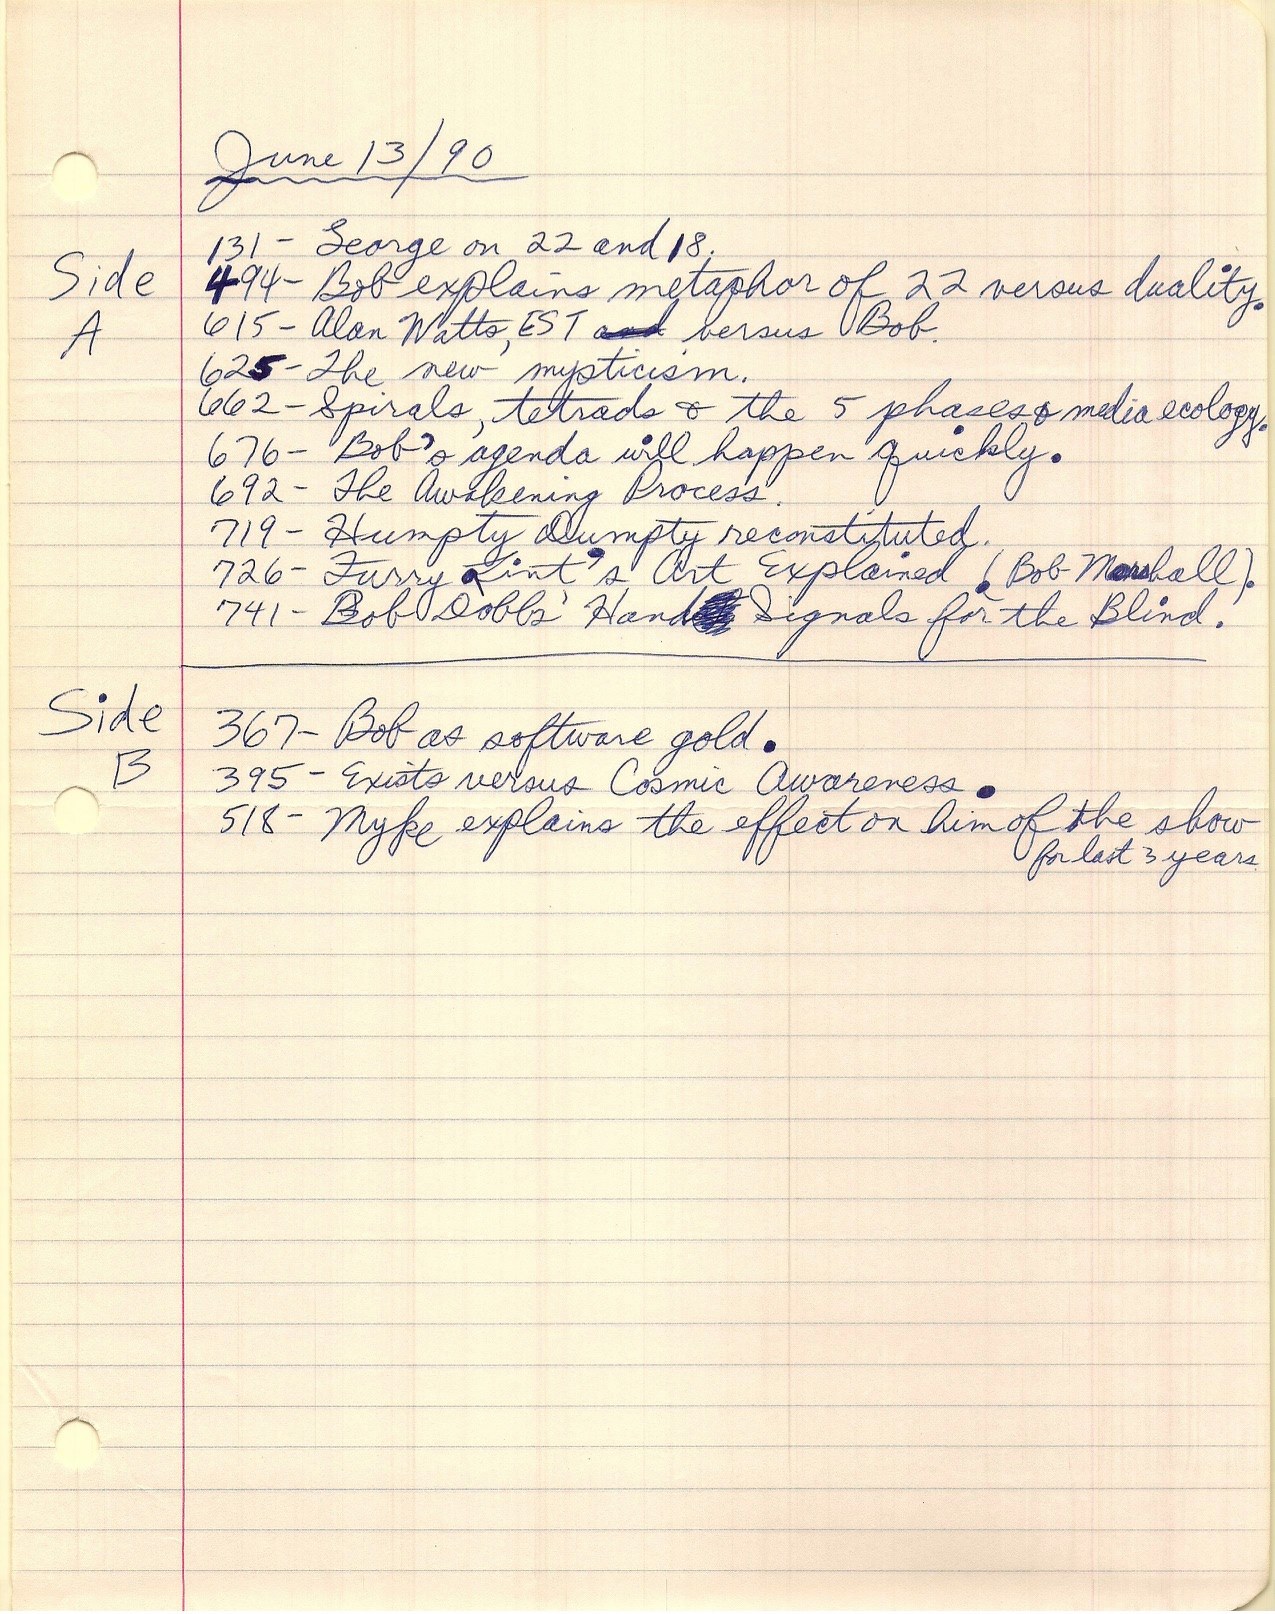 June 13/90
131- George on 22 and 18.
Side 494- Bob explains metaphor of 22 versus duality.
A 615- Alan Watts, EST versus Bob.
625- The new mysticism.
662- Spirals, tetrads & the 5 phases & media ecology.
676- Bob's agenda will happen quickly.
692- The Awakening Process.
719- Humpty Dumpty reconstituted.
726- Furry Lint's Art Explained (Bob Marshall).
741- Bob Dobbs' Hand Signals for the Blind.
Side 367- Bob as software gold.
B 395- Exists versus Cosmic Awareness.
518- Myke explains the effect on him of the show
for last 3 years.